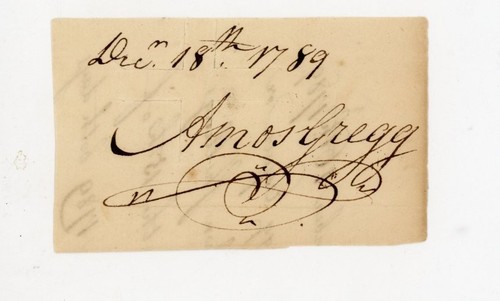 Decr. 18th. 1789
Amos Gregg